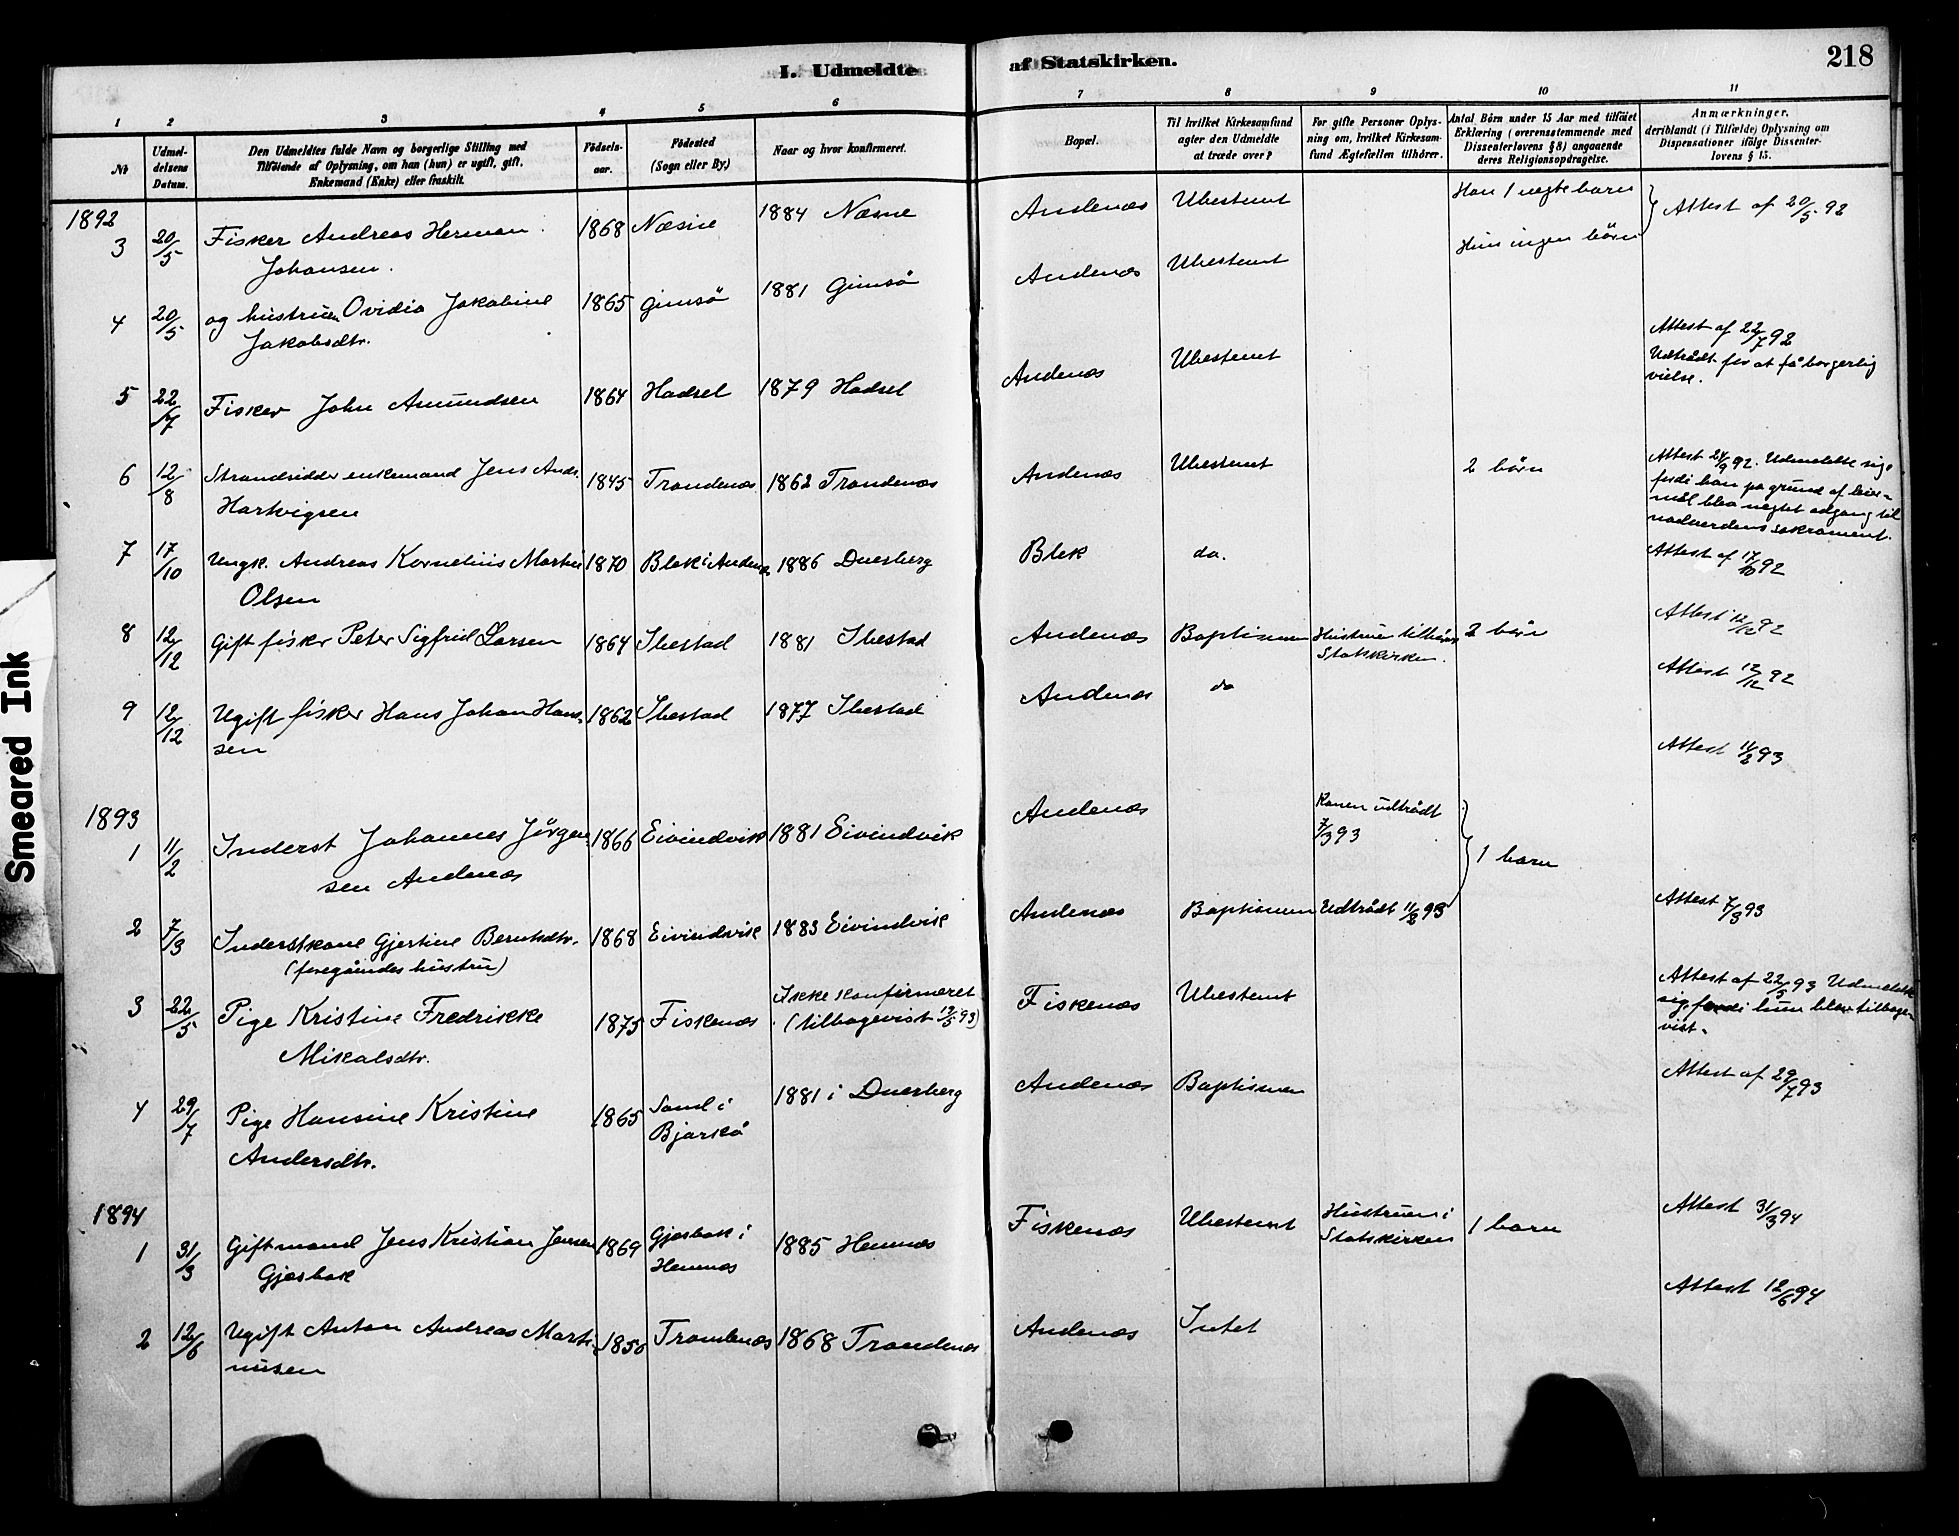 I. Udmeldte af Statskirken.
218
1 2 3 4 5 6 7 8 9 10 11
No
Udmel-
delsens
Datum.
Den Udmeldtes fulde Navn og borgerlige Stilling med
Tilföiende af Oplysning, om han (hun) er ugift, gift,
Enkemand (Enke) eller fraskilt.
Födsels-
aar.
Födested
(Sogn eller By.)
Naar og hvor konfirmeret.
Bopæl.
Til hvilket Kirkesamfund
agter den Udmeldte
at træde over?
For gifte Personer Oplys-
ning om, hvilket Kirkesam-
fund Ægtefællen tilhörer.
Antal Börn under 15 Aar med tilföiet
Erklæring (overensstemmende med
Dissenterlovens § 8) angaaende
deres Religionsopdragelse.
Anmærkninger,
deriblandt (i Tilfælde) Oplysning om
Dispensationer ifölge Dissenter-
lovens § 15.
1892
3 20/5 Fisker Andreas Herman 1868 Næsne 1884 Næsne Andenæs Ubestemt Han 1 uægte barn Attest af 20/5 92
Johansen.
Hun ingen börn
4 20/5 og hustruen Ovidia Jakobine 1865 Gimsö 1881 Gimsö Andenæs Ubestemt
Jakobsdtr.
5 22/7 Fisker John Amundsen 1864 Hadsel 1879 Hadsel Andenæs Ubestemt Attest af 22/7 92
Udtrådt for at få borgerlig
vielse.
6 12/8 Strandsidder enkemand Jens Andr. 1845 Trondenæs 1862 Trondenæs Andenæs Ubestemt 2 börn Attest 24/9 92. Udmeldte sig
Hartvigsen
fordi han på grund af leier-
mål blev negtet adgang til
nadverdens sakrament.
7 17/10 Ungk. Andreas Kornelius Martin 1870 Blek i Andenæs 1886 Dverberg Blek do. Attest af 17/10 92
Olsen
8 12/12 Gift fisker Peter Sigfrid Larsen 1864 Ibestad 1881 Ibestad Andenæs Baptismen Hustruen tilhörer 2 börn Attest 12/12 92
Statskirken.
9 12/12 Ugift fisker Hans Johan Han- 1862 Ibestad 1877 Ibestad Andenæs do Attest 12/12 92
sen
1893
1 11/2 Inderst Johannes Jörgen- 1866 Eivindvik 1881 Eivindvik Andenæs Konen udtrådt Attest 11/2 93
7/3 93
sen Andenæs
1 barn
2 7/3 Inderstkone Gjertine Berntsdtr. 1868 Eivindvik 1883 Eivindvik Andenæs Baptismen Udtrådt 11/2 93 Attest 7/3 93
(foregåendes hustru)
3 22/5 Pige Kristine Fredrikke 1875 Fiskenæs Ikke konfirmeret Fiskenæs Ubestemt Attest af 22/5 93 Udmeldte
(tilbagevist 19/5 93)
sig fordi hun blev tilbage-
vist.
Mikalsdtr.
4 29/7 Pige Hansine Kristine 1865 Sand i 1881 i Dverberg Andenæs Baptismen Attest af 29/7 93
Bjarkö
Andersdtr.
1894
1 31/3 Gift mand Jens Kristian Jensen 1869 Gjæsbak i 1885 Hemnæs Fiskenæs Ubestemt Hustruen i 1 barn Attest 31/3 94
Gjæsbak Hemnæs Statskirken
2 12/6 Ugift Anton Andreas Marti- 1850 Trondenæs 1868 Trondenæs Andenæs Intet Attest 12/6 94
nusen
Smeared Ink